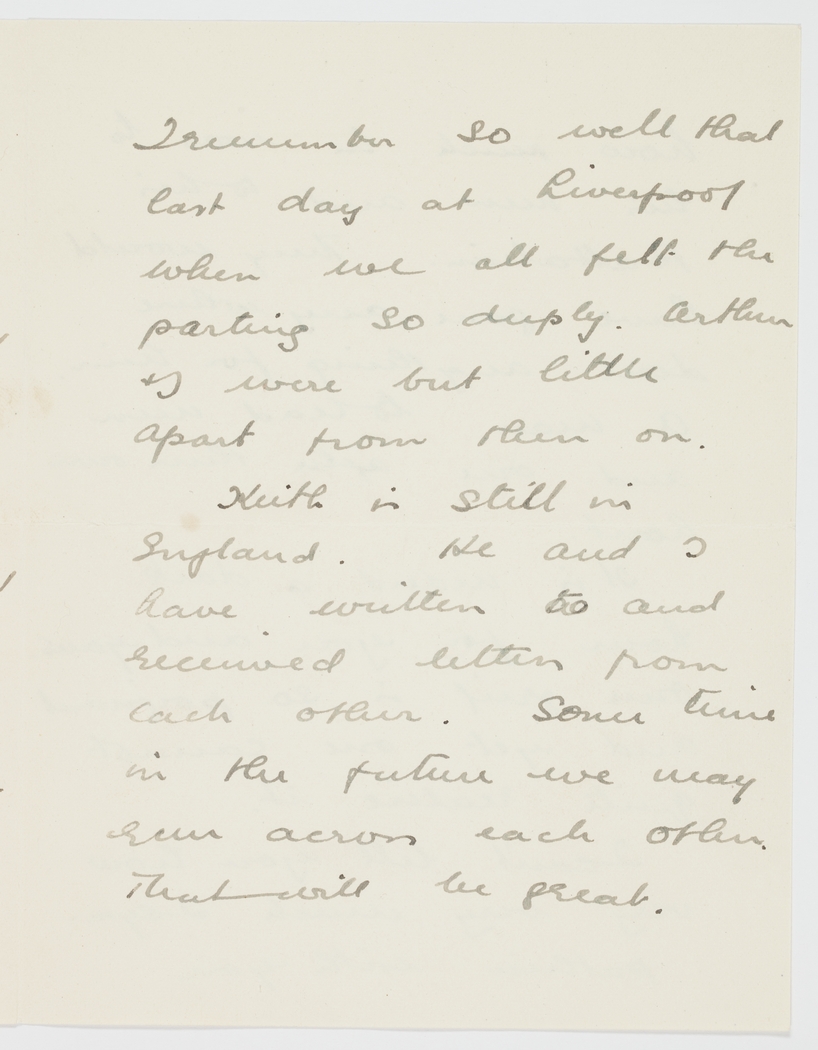 I remember so well that
last day at Liverpool
when we all felt the
parting so deeply. Arthur
& I were but little
apart from then on.
Keith is still in
England. He and I
have written to and
received letters from
each other. Some time
in the future we may
run across each other.
That will be great.